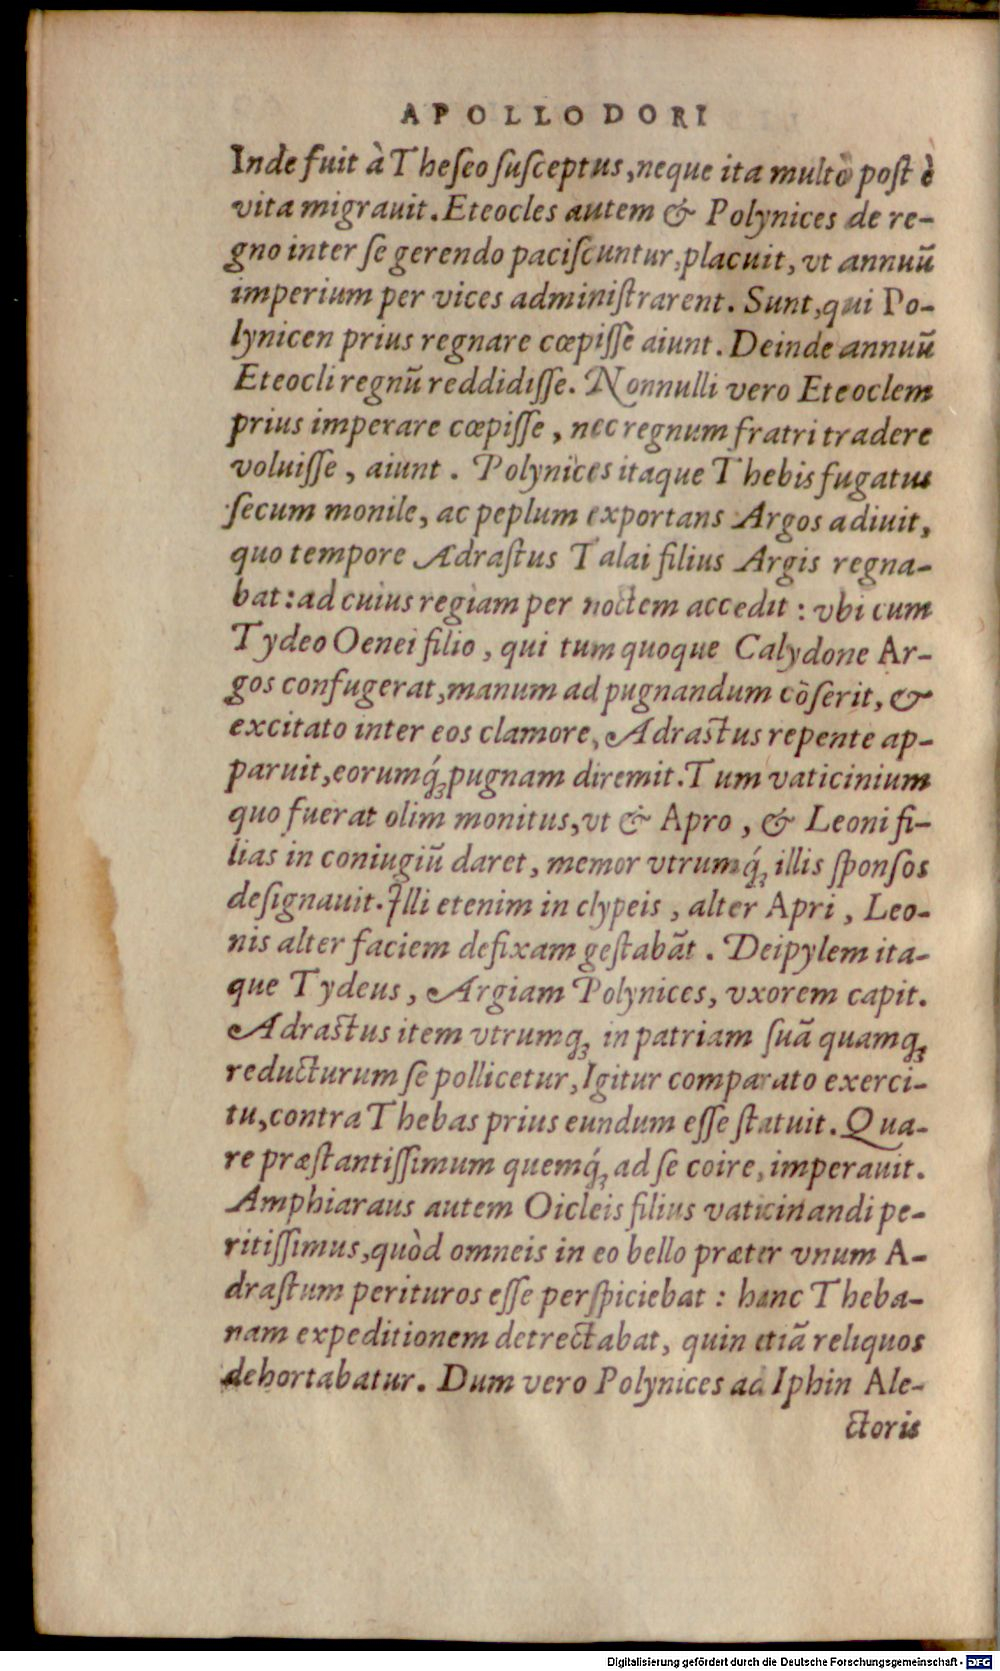 APOLLODORI
Inde fuit à Theseo susceptus, neque ita multò post è
vita migrauit. Eteocles autem & Polynices de re-
gno inter se gerendo paciscuntur, placuit, vt annuũ
imperium per vices administrarent. Sunt, qui Po-
lynicen prius regnare cœpisse aiunt. Deinde annuũ
Eteocli regnũ reddidisse. Nonnulli vero Eteoclem
prius imperare cœpisse, nec regnum fratri tradere
voluisse, aiunt. Polynices itaque Thebis fugatus
secum monile, ac peplum exportans Argos adiuit,
quo tempore Ædrastus Talai filius Argis regna-
bat: ad cuius regiam per noctem accedit: vbi cum
Tydeo Oenei filio, qui tum quoque Calydone Ar-
gos confugerat, manum ad pugnandum cõserit, &
excitato inter eos clamore, Adrastus repente ap-
paruit, eorumq́ꝫ pugnam diremit. Tum vaticinium
quo fuerat olim monitus, vt & Apro, & Leoni fi-
lias in coniugiũ daret, memor vtrumq́ꝫ illis sponsos
designauit. Illi etenim in clypeis, alter Apri, Leo-
nis alter faciem defixam gestabãt. Deipylem ita-
que Tydeus, Argiam Polynices, vxorem capit.
Adrastus item vtrumqꝫ in patriam suã quamqꝫ
reducturum se pollicetur, Igitur comparato exerci-
tu, contra Thebas prius eundum esse statuit. Qua-
re præstantissimum quemq́ꝫ ad se coire, imperauit.
Amphiaraus autem Oicleis filius vaticinandi pe-
ritissimus, quòd omneis in eo bello præter vnum A-
drastum perituros esse perspiciebat: hanc Theba-
nam expeditionem detrectabat, quin etiã reliquos
dehortabatur. Dum vero Polynices ad Iphin Ale-
ctoris
Digitalisierung gefördert durch die Deutsche Forschungsgemeinschaft - DFG